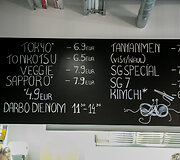 TOKYO" - 6.9 EUR
TONKOTSU - 6.5 EUR
VEGGIE - 7.9 EUR
SAPPORO* - 7.9 EUR
*4.9 EUR
DARBO DIENOMI 11ºº-14ºº
TANTANMEN -
SG SPECIAL -
SG 7 -
KIMCHI* -